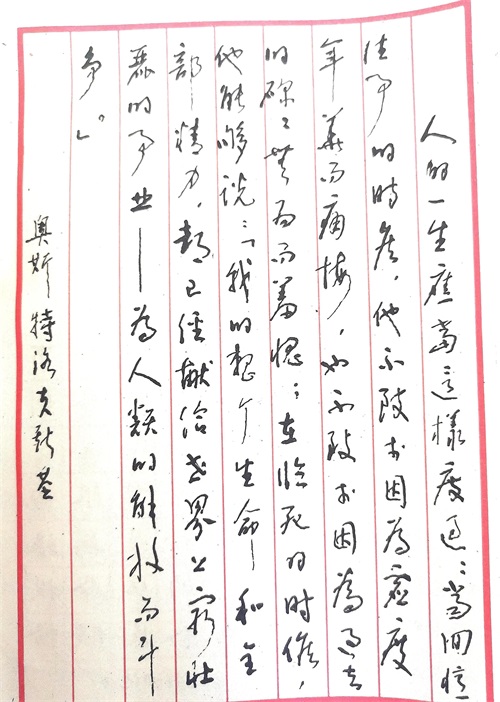 人的一生應當這樣度過：當回憶
往事的時候，他不致於因為虛度
年華而痛悔，也不致於因為過去
的碌々無为而羞愧；在臨死的时候，
他能够說：「我的整个生命和全
部精力，都已經獻給世界上最壯
麗的事业——為人類的解放而斗
争。」
奧斯特洛夫斯基